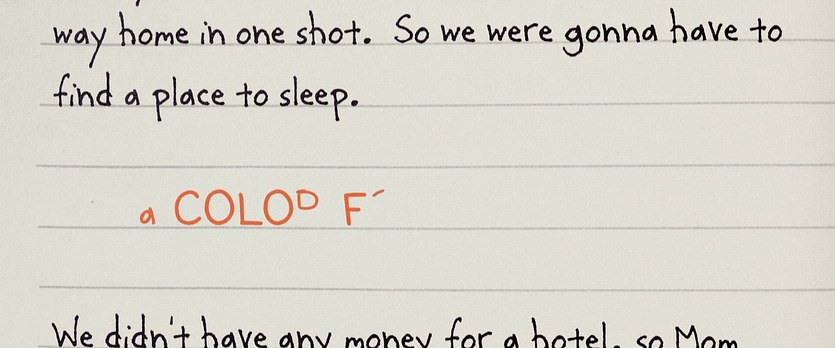 way home in one shot. So we were gonna have to
find a place to sleep.
a COLOD F
We didn't have any money for a hotel, so Mom